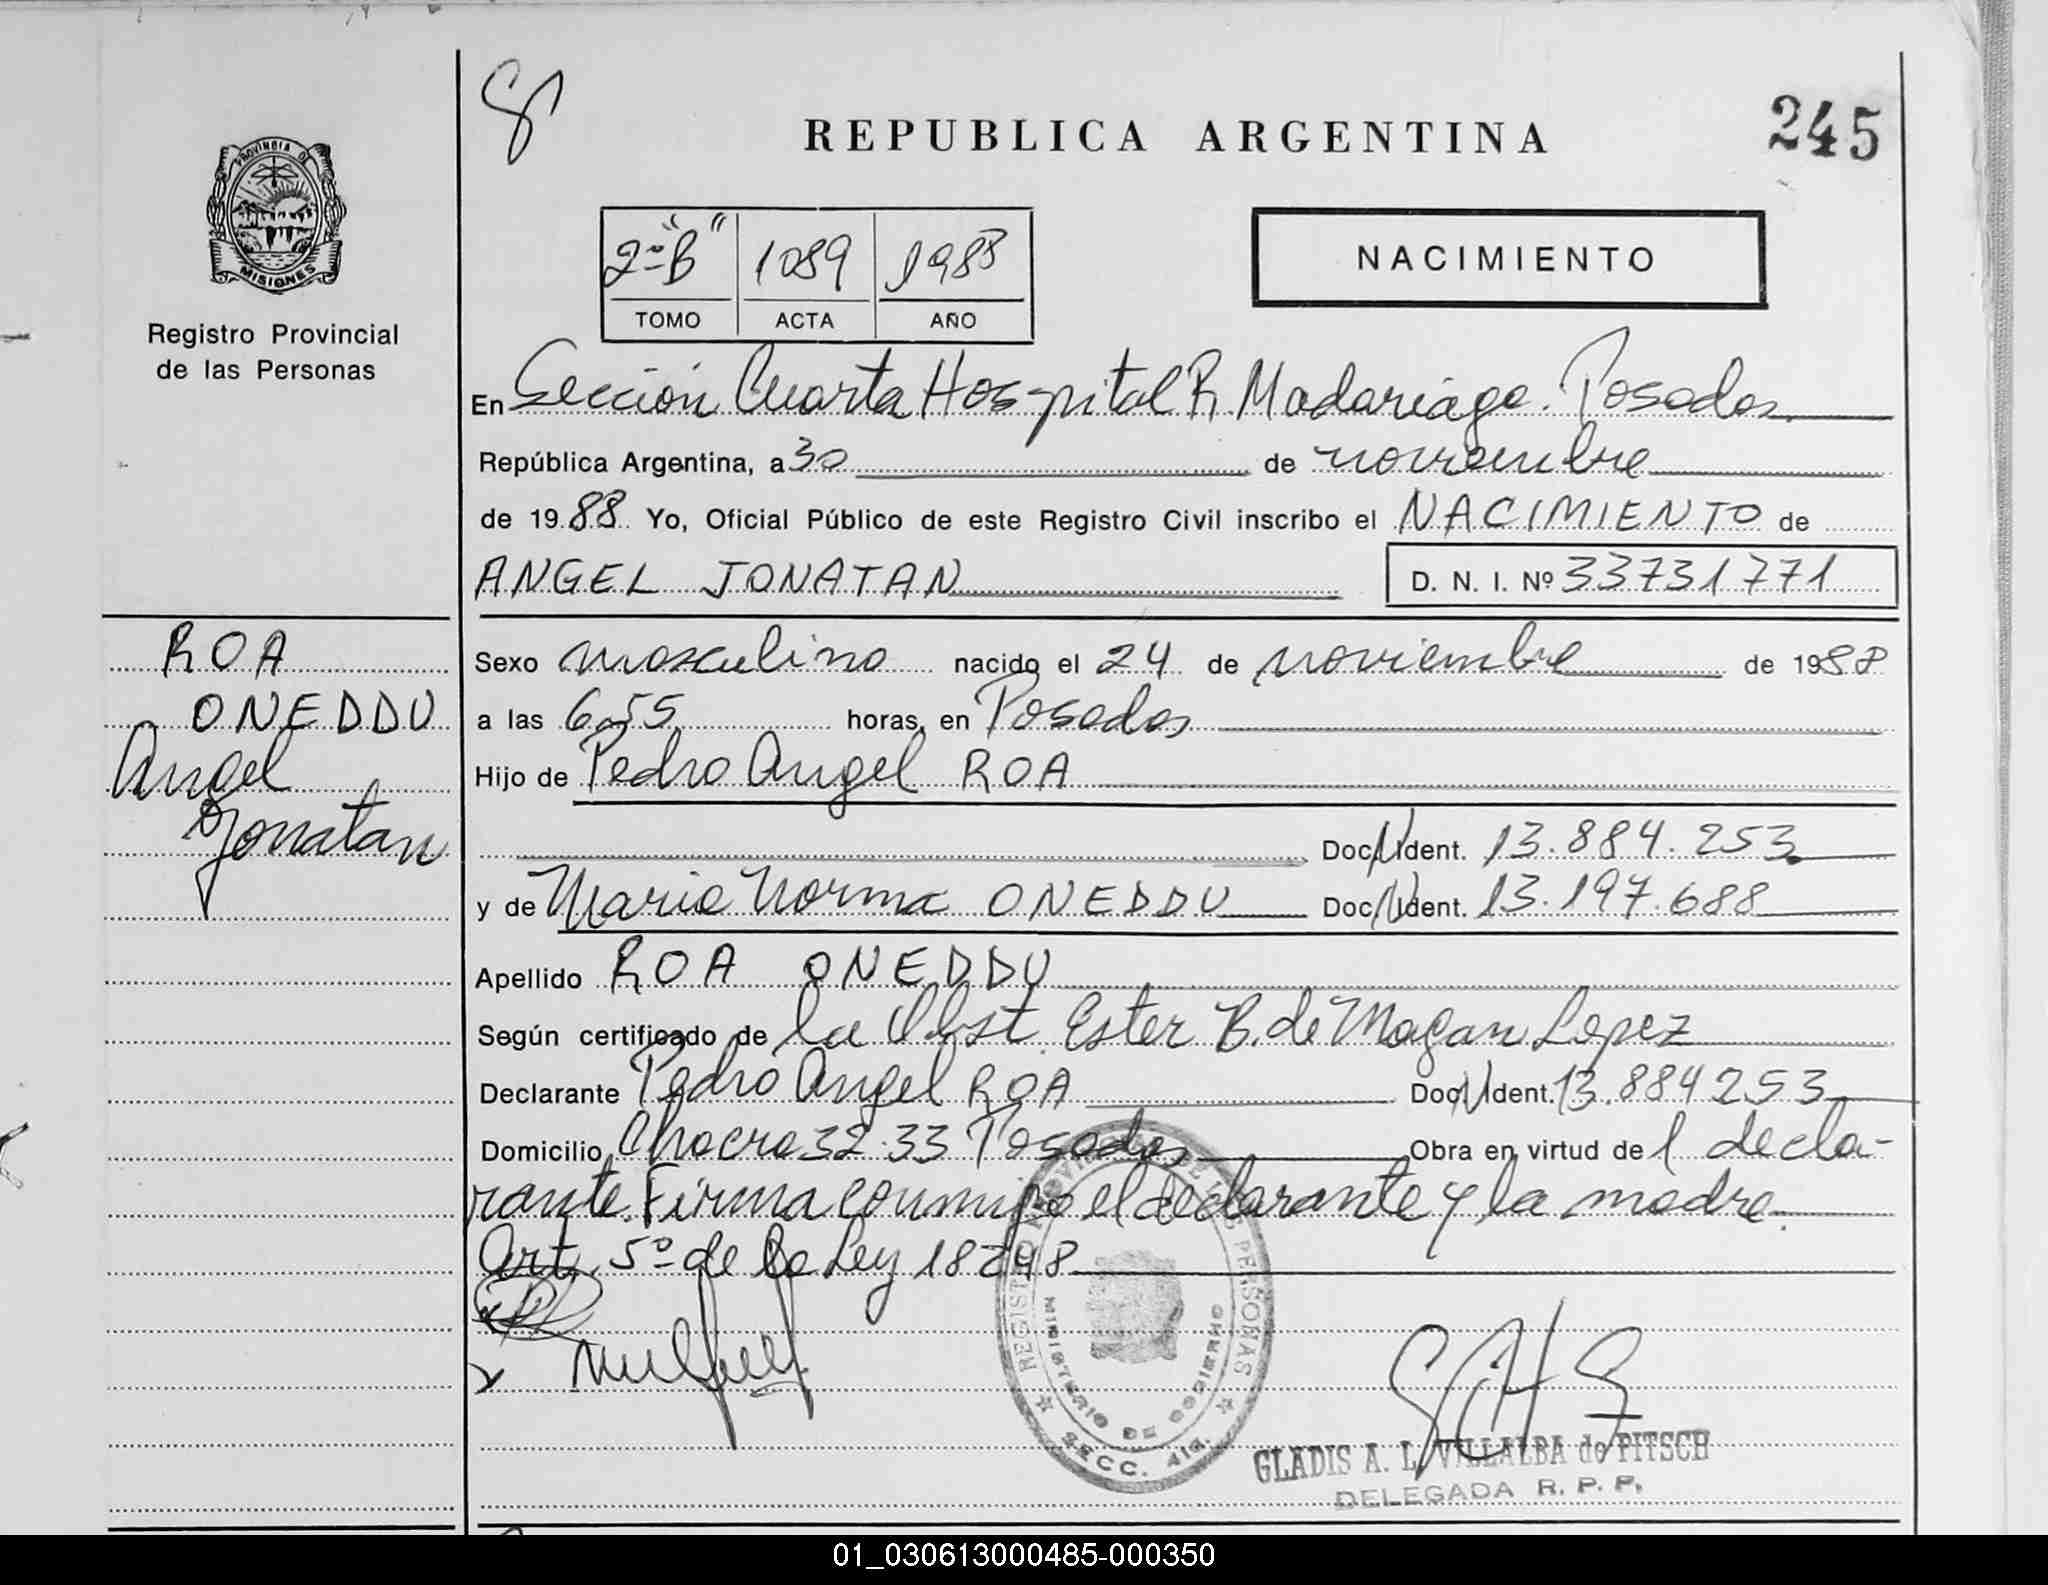 245
REPUBLICA ARGENTINA
PROVINCIA DE
MISIONES
Registro Provincial
de las Personas
2º "B" 1089 1988
TOMO ACTA AÑO
NACIMIENTO
En Sección Cuarta Hospital R. Madariaga. Posadas
República Argentina, a 30 de noviembre
de 1988 Yo, Oficial Público de este Registro Civil inscribo el NACIMIENTO de
ANGEL JONATAN D. N. I. Nº 33731771
ROA
ONEDDU
Angel
Jonatan
Sexo masculino nacido el 24 de noviembre de 1988
a las 6,55 horas, en Posadas
Hijo de Pedro Angel ROA
Doc. Ident. 13.884.253
y de Maria Norma ONEDDU Doc. Ident. 13.197.688
Apellido ROA ONEDDU
Según certificado de la Obst. Ester B. de Magan Lopez
Declarante Pedro Angel ROA Doc. Ident. 13.884253
Domicilio Chacra 32-33 Posadas Obra en virtud de l decla-
rante. Firma conmigo el declarante y la madre.
Art. 5º de la Ley 18248
REGISTRO PROVINCIAL DE LAS PERSONAS
MINISTERIO DE GOBIERNO
SECC. 4ta.
GLADIS A. L. VILLALBA de PITSCH
DELEGADA R. P. P.
01_030613000485-000350